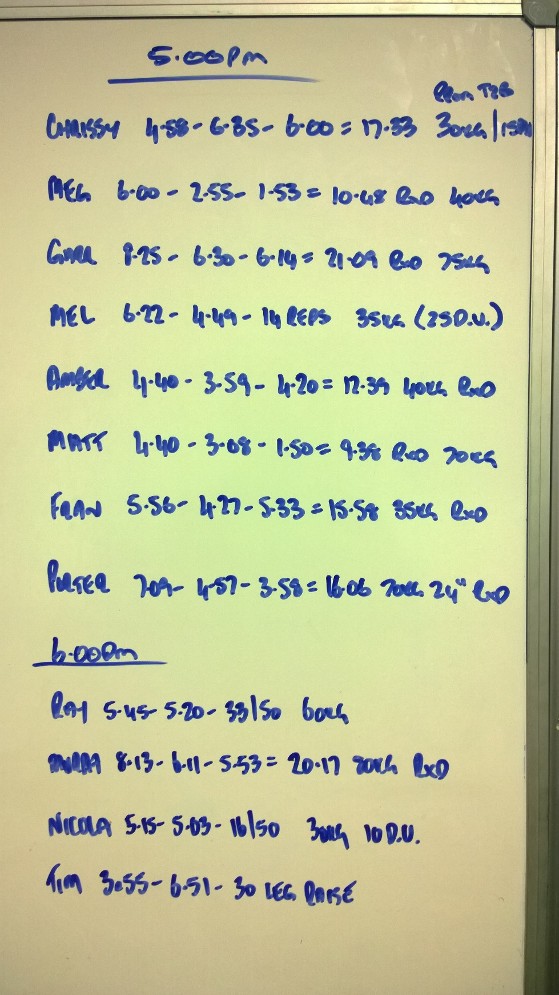 5.00pm
T2B
CHRISSY 4.58 - 6.35 - 6.00 = 17.33 30KG/15
MEG 6.00 - 2.55 - 1.53 = 10.48 RxD 40KG
8.25 - 6.30 - 6.14 = 21.09 RxD 75KG
MEL 6.22 - 4.49 - 14 REPS 35KG (25 D.U.)
AMBER 4.40 - 3.59 - 4.20 = 12.39 40KG RxD
MATT 4.40 - 3.08 - 1.50 = 9.38 RxD 70KG
FRAN 5.56 - 4.27 - 5.33 = 15.58 35KG RxD
PORTER 7.09 - 4.57 - 3.58 = 16.06 70KG 24" RxD
6.00pm
RAY 5.45 - 5.20 - 33/50 60KG
8.13 - 6.11 - 5.53 = 20.17 RxD
NICOLA 5.15 - 5.03 - 16/50 30KG 10 D.U.
TIM 3.55 - 6.51 - 30 LEG RAISE